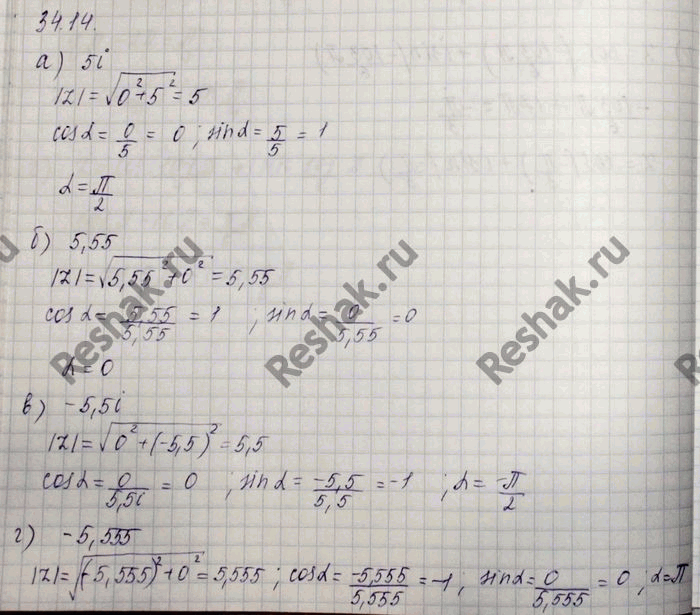 34.14.
а) 5i
|z| = √(0² + 5²) = 5
cos α = 0/5 = 0 ; sin α = 5/5 = 1
α = π/2
б) 5,55
|z| = √(5,55² + 0²) = 5,55
cos α = 5,55/5,55 = 1 ; sin α = 0/5,55 = 0
α = 0
в) -5,5i
|z| = √(0² + (-5,5)²) = 5,5
cos α = 0/5,5i = 0 ; sin α = -5,5/5,5 = -1 ; α = -π/2
г) -5,555
|z| = √((-5,555)² + 0²) = 5,555 ; cos α = -5,555/5,555 = -1 ; sin α = 0/5,555 = 0 ; α = π
Reshak.ru
Reshak.ru
Reshak.ru